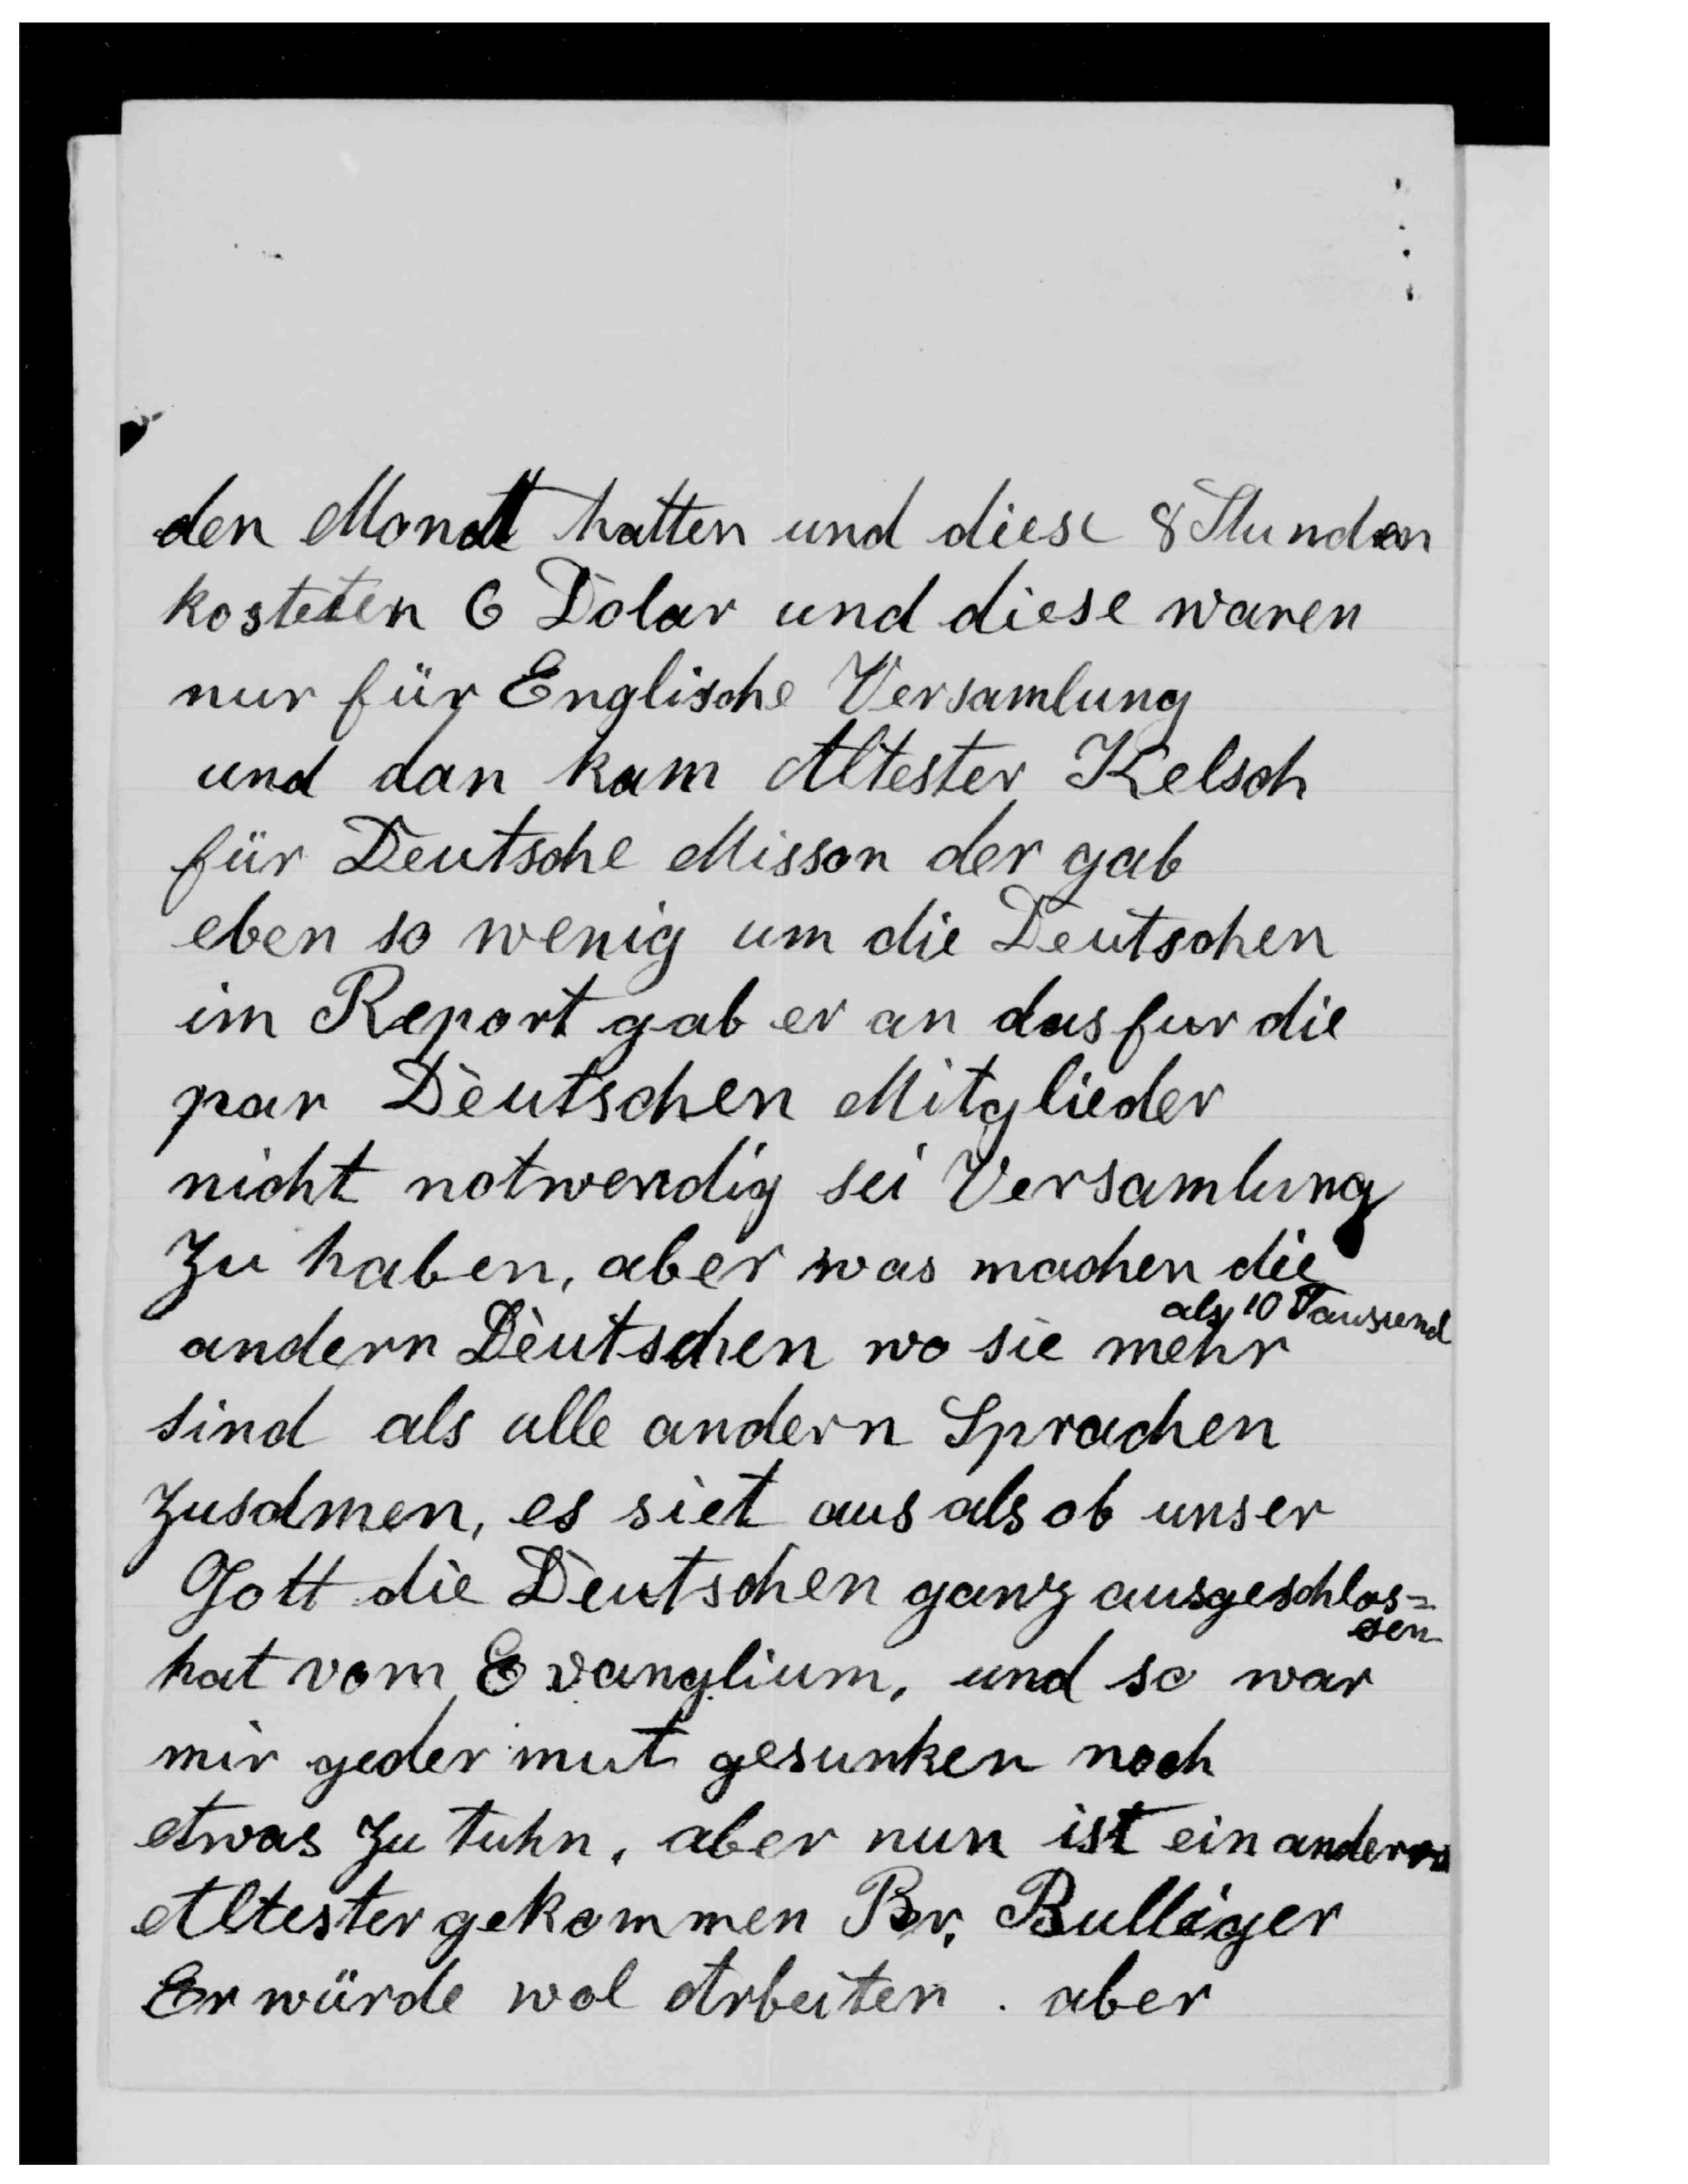 den Monatt hatten und diese 8 Stunden
kosteten 6 Dolar und diese waren
nur für Englische Versamlung
und dan kam Altester Kelsch
für Deutsche Misson der gab
eben so wenig um die Deutschen
im Report gab er an das fur die
par Deutschen Mitglieder
nicht notwendig sei Versamlung
Zu haben, aber was machen die
als 10 Tausend
andern Deutschen wo sie mehr
sind als alle andern Sprachen
Zusamen, es siet aus als ob unser
Gott die Deutschen ganz ausgeschlos=
sen
hat vom Evanglium, und so war
mir geder mut gesunken noch
etwas Zu tuhn, aber nun ist ein anderer
Altester gekommen Br. Bulliger
Er würde wol Arbeiten. aber